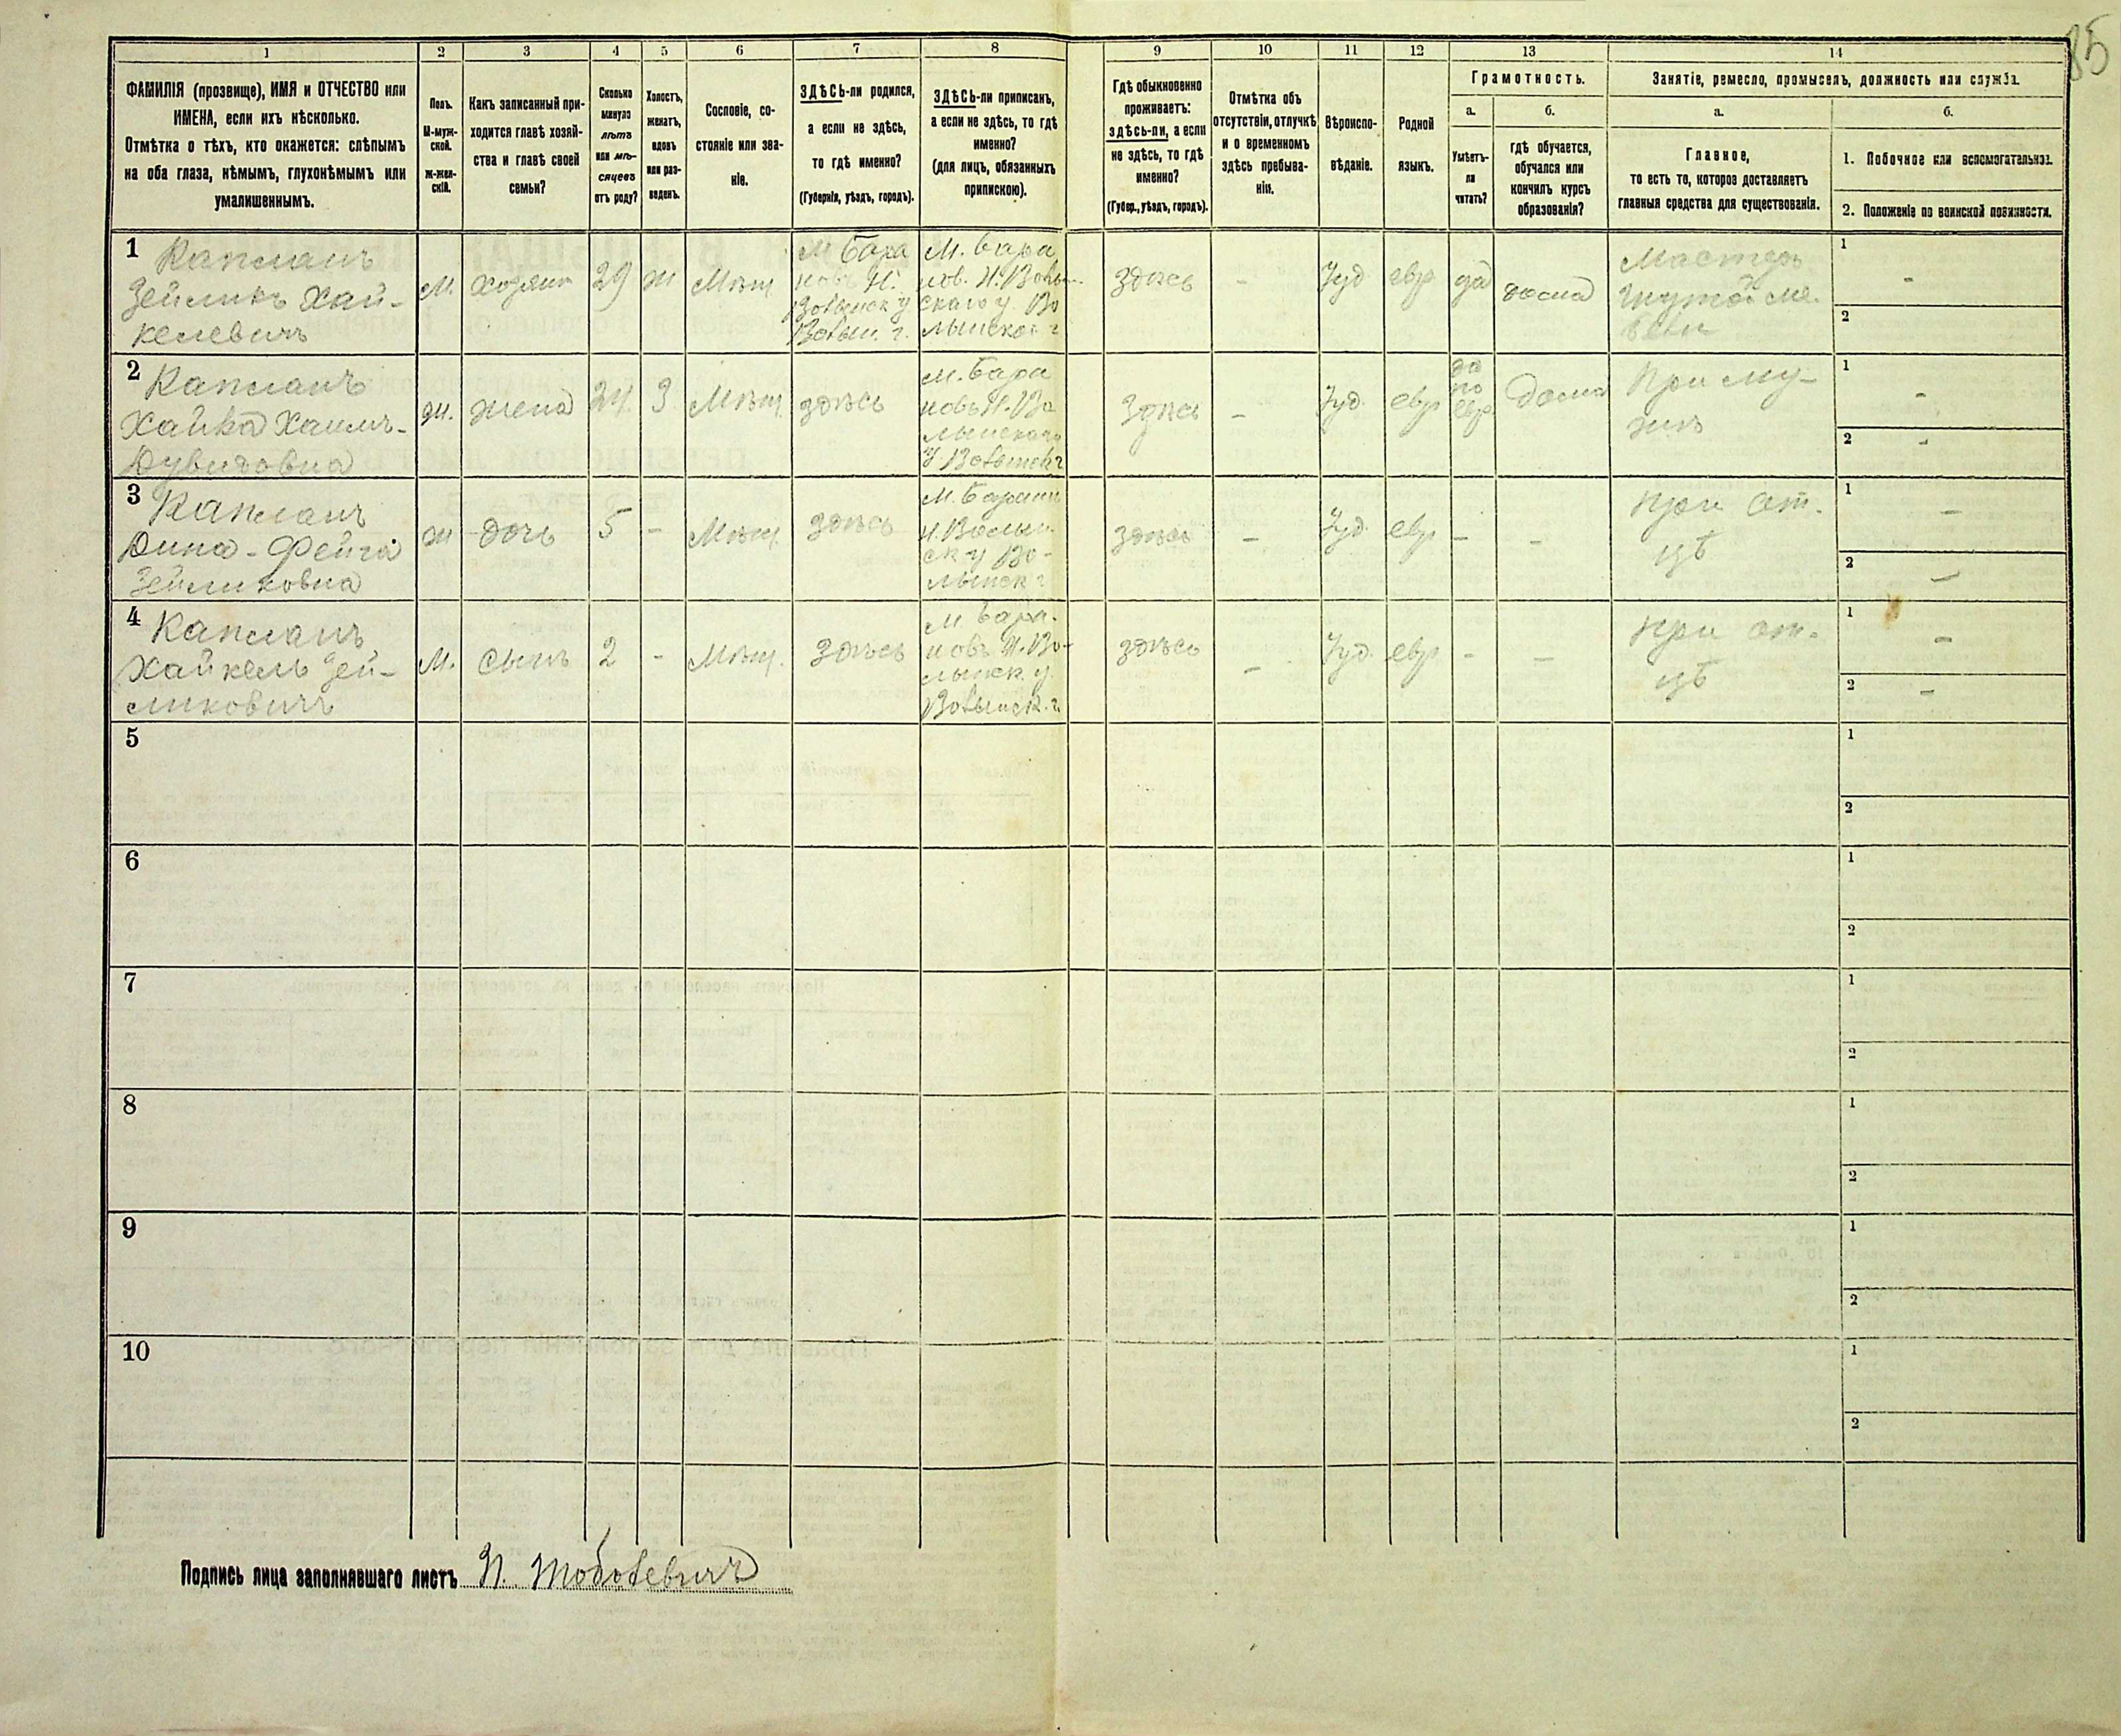 85
1 2 3 4 5 6 7 8 9 10 11 12 13 14
ФАМИЛІЯ (прозвище), ИМЯ и ОТЧЕСТВО или
ИМЕНА, если ихъ нѣсколько.
Отмѣтка о тѣхъ, кто окажется: слѣпымъ
на оба глаза, нѣмымъ, глухонѣмымъ или
умалишеннымъ.
Полъ.
М-муж-
ской.
ж-жен-
скій.
Какъ записанный при-
ходится главѣ хозяй-
ства и главѣ своей
семьи?
Сколько
минуло
лѣтъ
или мѣ-
сяцевъ
отъ роду?
Холостъ,
женатъ,
вдовъ
или раз-
веденъ.
Сословіе, со-
стояніе или зва-
ніе.
ЗДѢСЬ-ли родился,
а если не здѣсь,
то гдѣ именно?
(Губернія, уѣздъ, городъ).
ЗДѢСЬ-ли приписанъ,
а если не здѣсь, то гдѣ
именно?
(для лицъ, обязанныхъ
припискою).
Гдѣ обыкновенно
проживаетъ:
здѣсь-ли, а если
не здѣсь, то гдѣ
именно?
(Губер., уѣздъ, городъ).
Отмѣтка объ
отсутствіи, отлучкѣ
и о временномъ
здѣсь пребыва-
ніи.
Вѣроиспо-
вѣданіе.
Родной
языкъ.
Грамотность.
а.
Умѣетъ-
ли
читать?
б.
гдѣ обучается,
обучался или
кончилъ курсъ
образованія?
Занятіе, ремесло, промыселъ, должность или служба.
а.
Главное,
то есть то, которое доставляетъ
главныя средства для существованія.
б.
1. Побочное или вспомогательное.
2. Положеніе по воинской повинности.
1 Капланъ
Зейликъ Хай-
келевичъ
М.
хозяин
29
ж
Мѣщ
М Бара
новъ Н.
Волынск у
Волын. г.
М. Бара
нов. Н. Волын-
скаго у. Во
лынской г
Здѣсь
-
Іуд.
евр
да
дома
Мастеръ
1 -
2
2 Капланъ
Хайка Хаимъ-
Дувидовна
ж.
жена
24
З
Мѣщ
здѣсь
М. Бара
новъ Н. Во
лынскаго
У Волынск г
Здѣсь
-
Іуд.
евр
да
по
евр
Дома
При му-
жѣ
1 -
2 -
3 Капланъ
Дина-Фейга
Зейликовна
ж
дочь
5
-
Мѣщ.
здѣсь
М. Барановъ
Н. Волын.
ск у Во-
лынск г
здѣсь
-
Іуд.
евр
-
-
при от-
цѣ
1 -
2 -
4 Капланъ
Хайкель Зей-
ликовичъ
М.
сынъ
2
-
Мѣщ.
Здѣсь
М Бара-
новъ Н. Во-
лынск. у.
Волынск. г.
здѣсь
-
Іуд.
евр
-
-
при от-
цѣ
1 -
2 -
5
1
2
6
1
2
7
1
2
8
1
2
9
1
2
10
1
2
Подпись лица заполнявшаго листъ